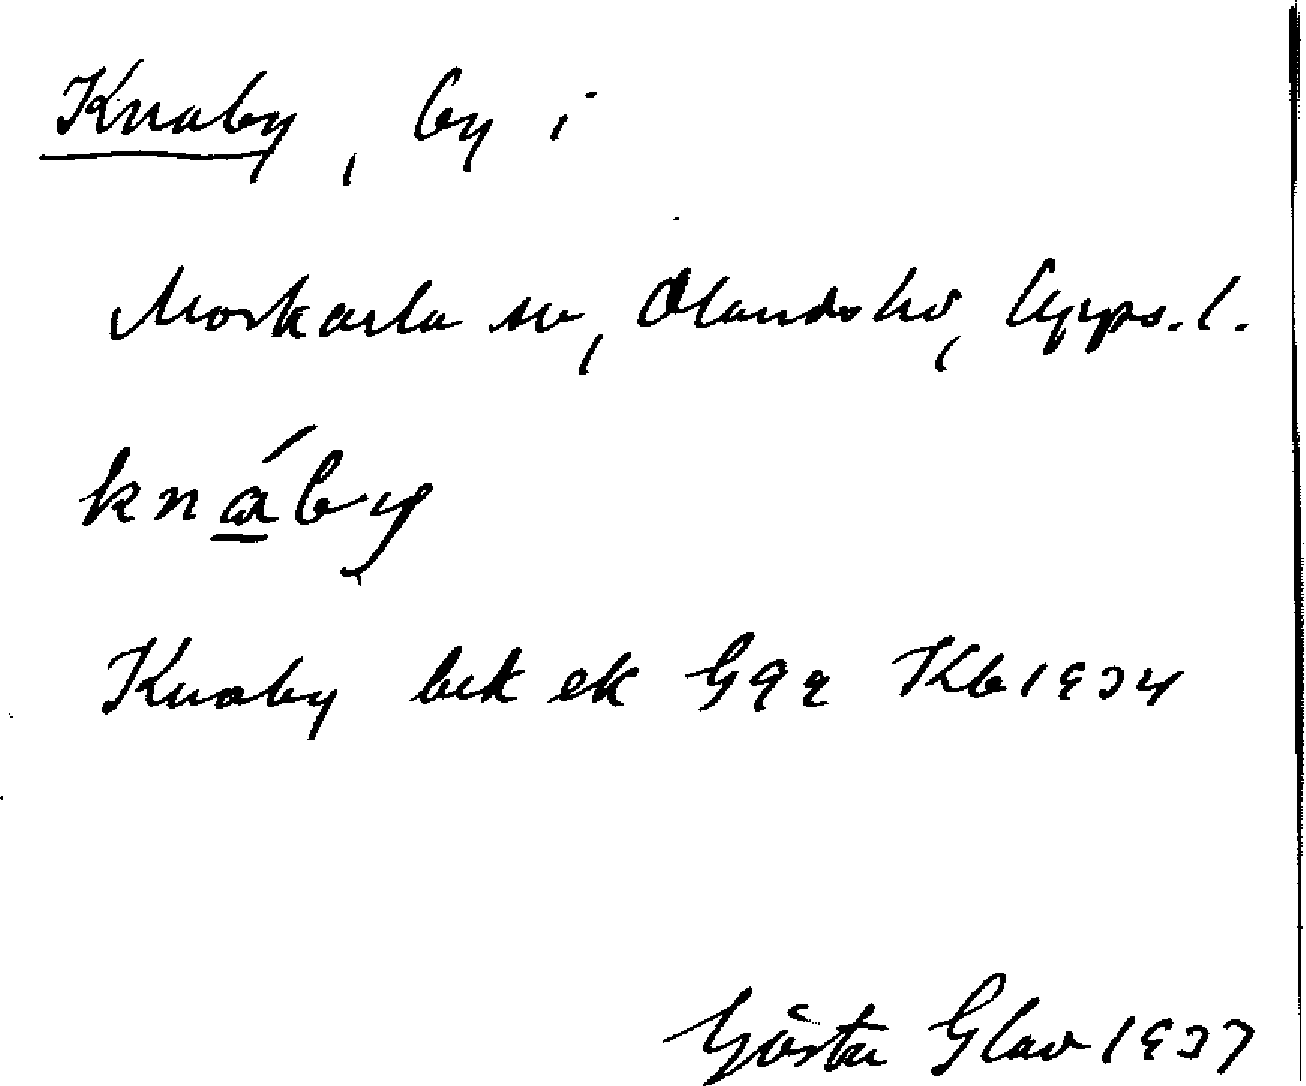 Knaby, by i
Morkarla sn, Olands hd, Upps. l.
knáby
Knaby bek ek Gqr Kb 1934
Gösta Glav 1937